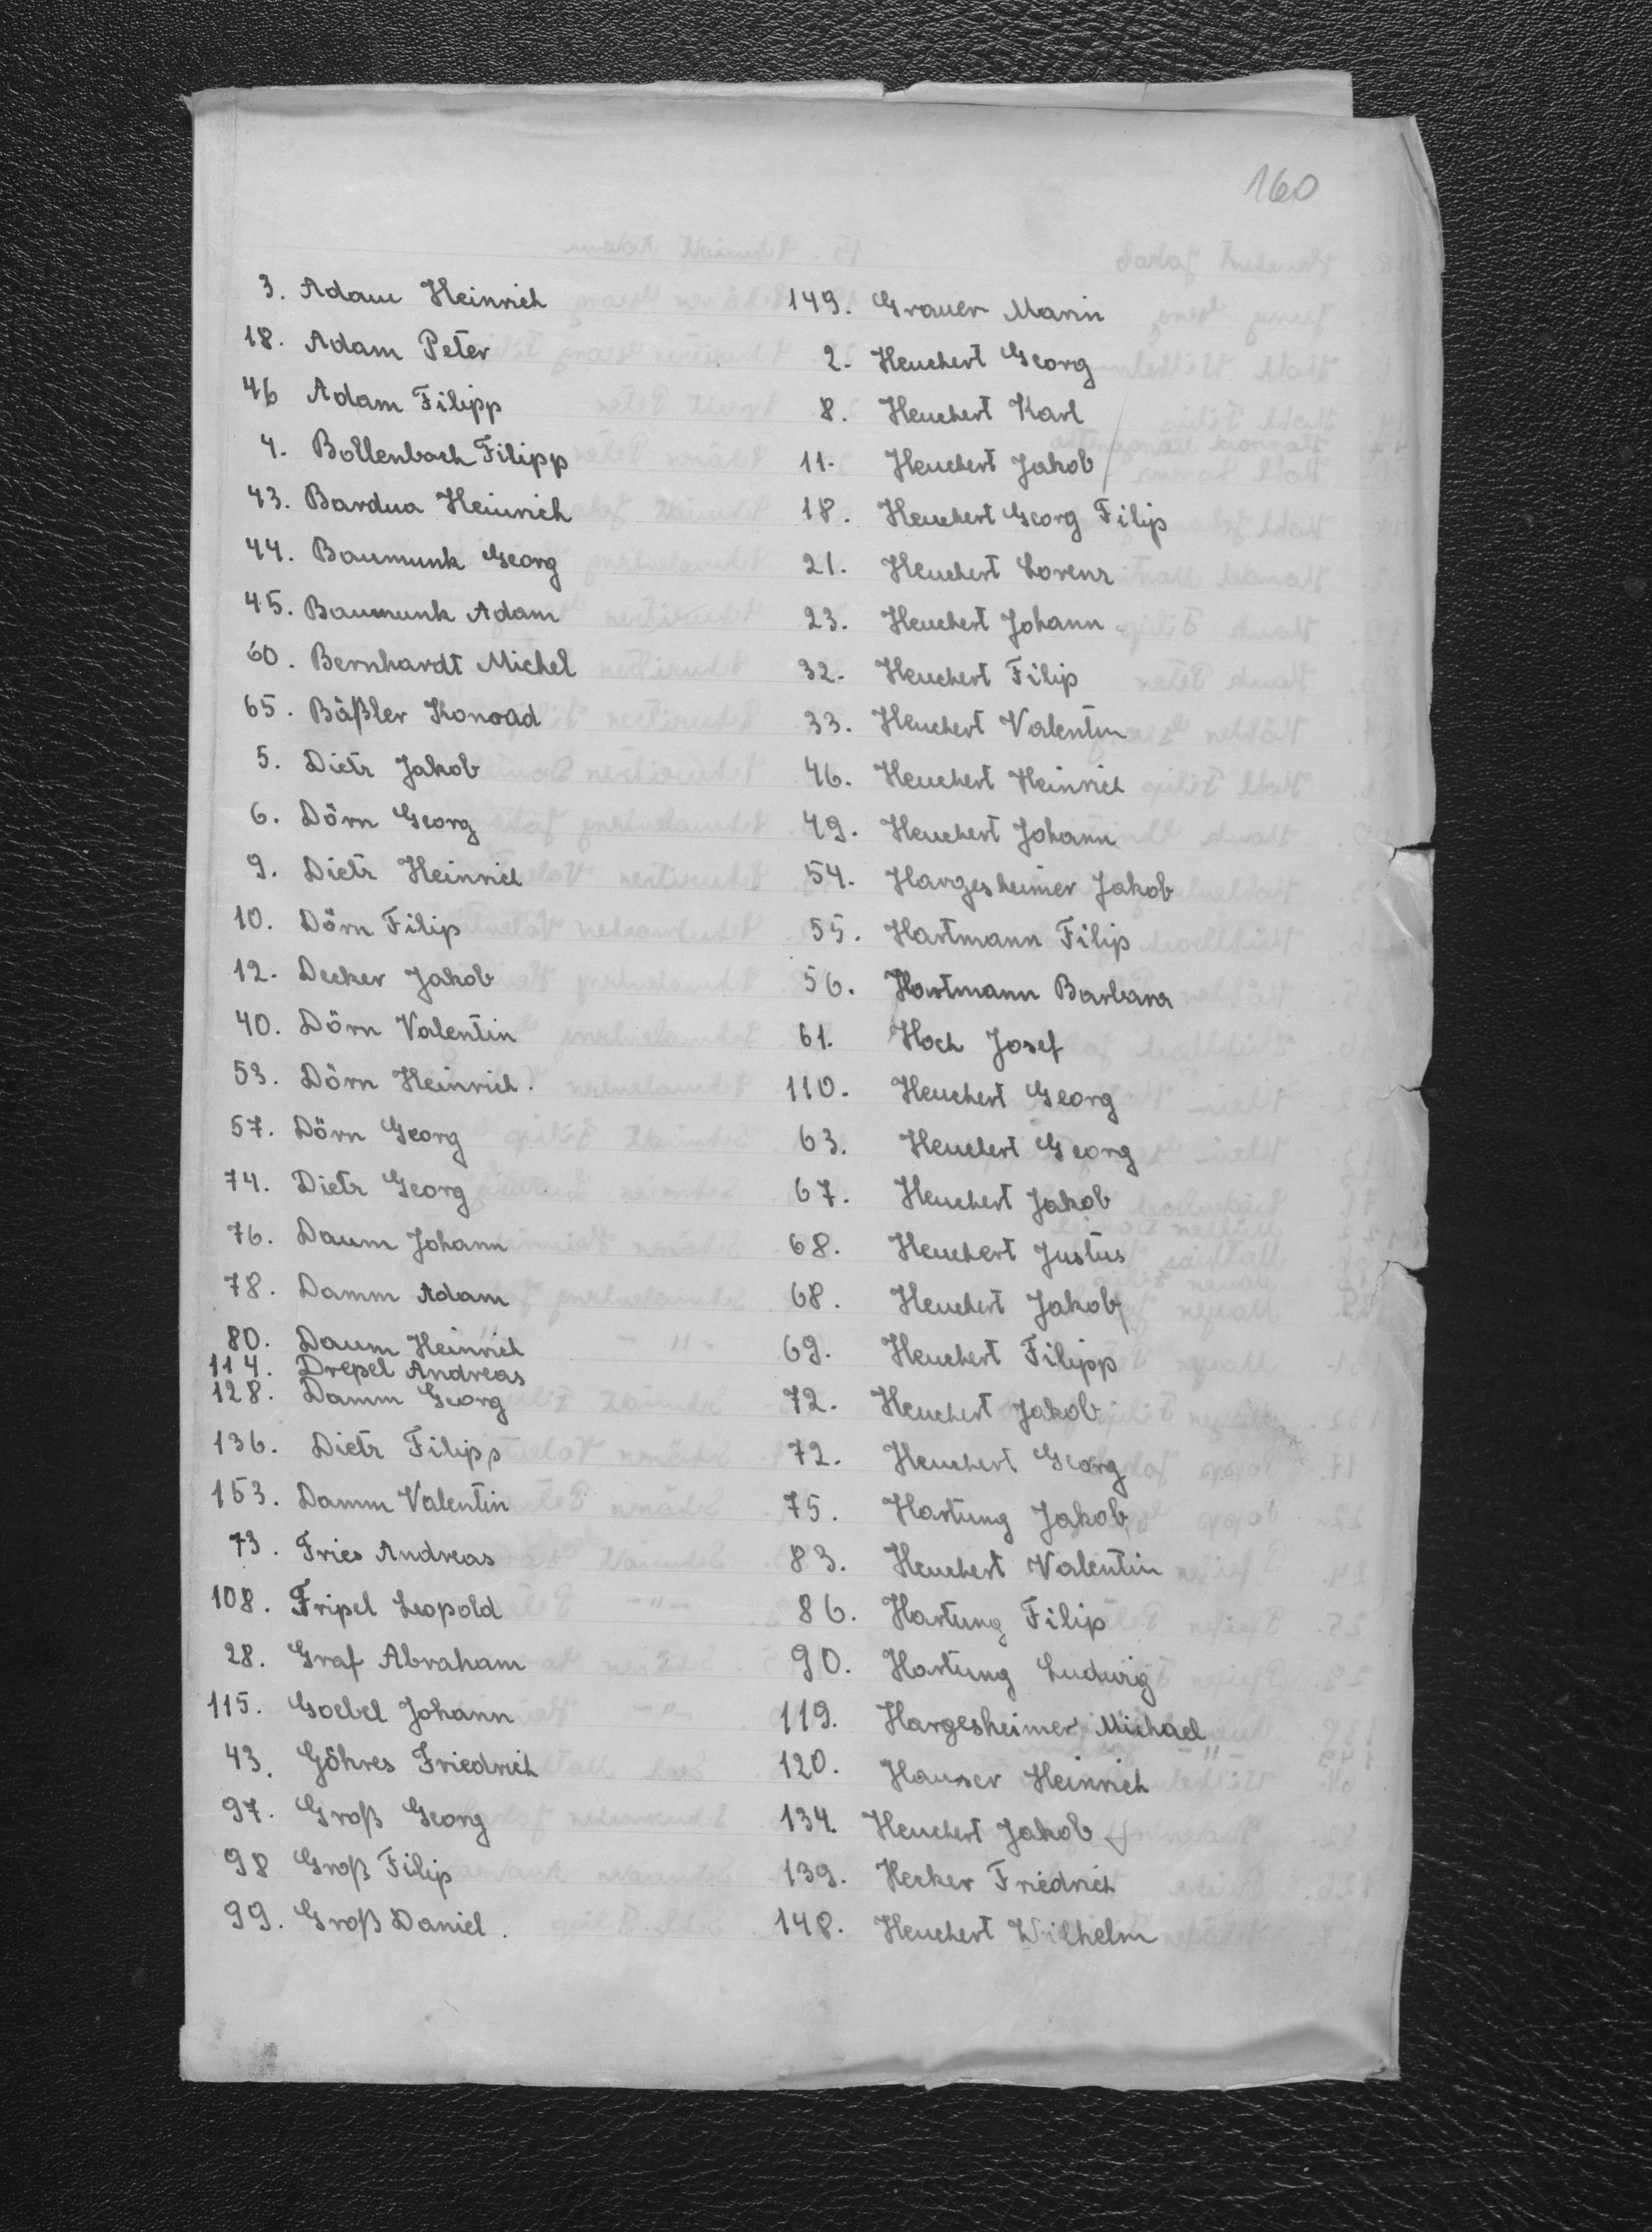 160
3. Adam Heinrich
18. Adam Peter
46 Adam Filipp
4. Bollenbach Filipp
43. Bardua Heinrich
44. Baumunk Georg
45. Baumunk Adam
60. Bernhardt Michel
65. Bäßler Konrad
5. Dietz Jakob
6. Dörn Georg
9. Dietz Heinrich
10. Dörn Filip
12. Decker Jakob
40. Dörn Valentin
53. Dörn Heinrich.
57. Dörn Georg
74. Dietz Georg
76. Daum Johann
78. Damm Adam
80. Daum Heinrich
114. Drepel Andreas
128. Damm Georg
136. Dietz Filipp
153. Damm Valentin
73. Fries Andreas
108. Fripel Leopold
28. Graf Abraham
115. Goebel Johann
43. Göhres Friedrich
97. Groß Georg
98 Groß Filip
99. Groß Daniel.
149. Grauer Marin
2. Heuchert Georg
8. Heuchert Karl
11. Heuchert Jakob
18. Heuchert Georg Filip
21. Heuchert Lorenz
23. Heuchert Johann
32. Heuchert Filip
33. Heuchert Valentin
46. Heuchert Heinrich
49. Heuchert Johann
54. Hargesheimer Jakob
55. Hartmann Filip
56. Hartmann Barbara
61. Hoch Josef
110. Heuchert Georg
63. Heuchert Georg
67. Heuchert Jakob
68. Heuchert Justus
68. Heuchert Jakob
69. Heuchert Filipp
72. Heuchert Jakob
72. Heuchert Georg
75. Hartung Jakob
83. Heuchert Valentin
86. Hartung Filip
90. Hartung Ludwig
119. Hargesheimer Michael
120. Hauser Heinrich
134. Heuchert Jakob
139. Hecker Friedrich
148. Heuchert Wilhelm